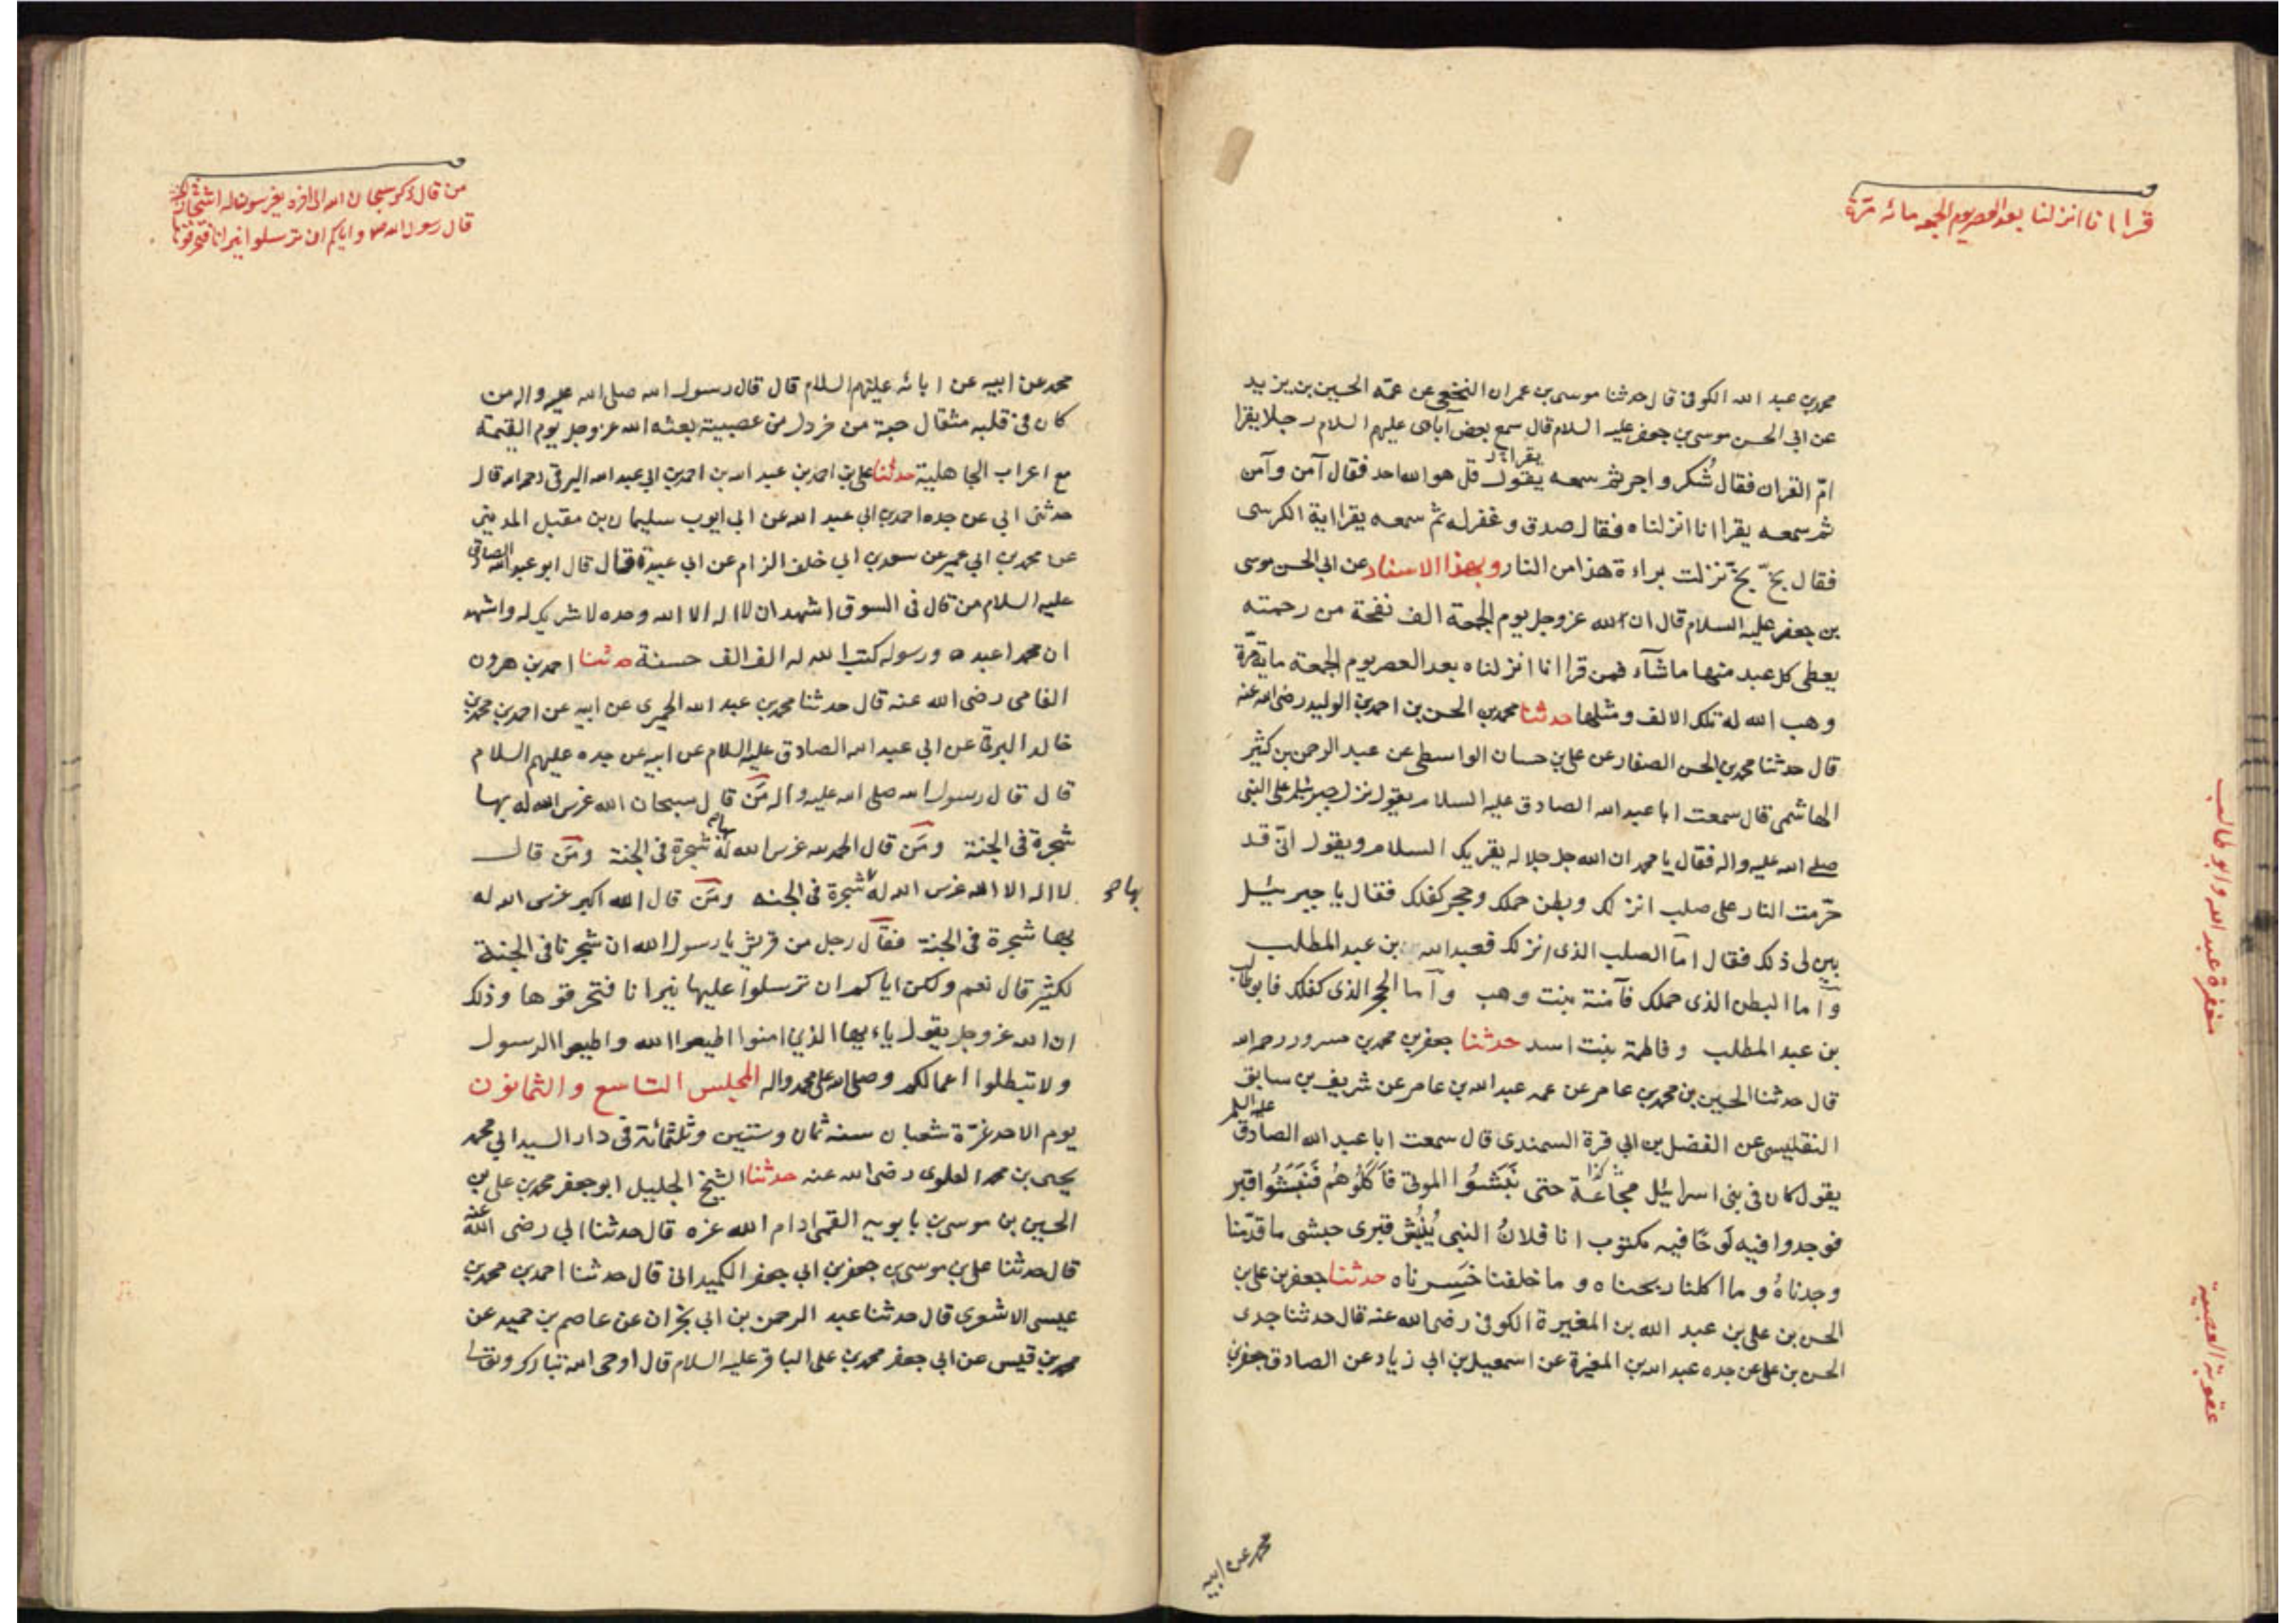 قرا انا انزلنا بعد العصر يوم الجمعه مائه مرّة
محمد بن عبد الله الكوفى قال حدثنا موسى بن عمران النخعى عن عمّه الحسين بن يزيد
عن ابى الحسن موسى بن جعفر عليه السلام قال سمع بعض آبائى عليهم السلام رجلا يقرا
امّ القران فقال شُكر واجر ثم سمعه يقول قل هو الله احد فقال آمن وآمن
ثم سمعه يقرا انا انزلناه فقال صدق وغفر له ثم سمعه يقرا اية الكرسى
فقال بخّ بخّ نزلت براءة هذا من النار وبهذا الاسناد عن ابى الحسن موسى
بن جعفر عليه السلام قال ان لله عز وجل يوم الجمعة الف نفحة من رحمته
يعطى كل عبد منها ما شآء فمن قرا انا انزلناه بعد العصر يوم الجمعة ماية مرّة
وهب الله له تلك الالف ومثلها حدثنا محمد بن الحسن بن احمد بن الوليد رضى الله عنه
قال حدثنا محمد بن الحسن الصفار عن على بن حسان الواسطى عن عبد الرحمن بن كثير
الهاشمى قال سمعت ابا عبد الله الصادق عليه السلام يقول نزل جبرئيل على النبى
صلى الله عليه واله فقال يا محمد ان الله جل جلاله يقريك السلام ويقول انّى قد
حرّمت النار على صلب انزلك وبطن حملك وحجر كفلك فقال يا جبرئيل
بين لى ذلك فقال امّا الصلب الذى انزلك فعبد الله بن عبد المطلب
وامّا البطن الذى حملك فآمنة بنت وهب وآما الحجر الذى كفلك فابوطالب
بن عبد المطلب وفاطمة بنت اسد حدثنا جعفر بن محمد بن مسرور رحمه الله
قال حدثنا الحسين بن محمد بن عامر عن عمه عبد الله بن عامر عن شريف بن سابق
التفليسى عن الفضل بن ابى قرة السمندى قال سمعت ابا عبد الله الصادق عليه السلم
يقول كان فى بنى اسرائيل مجاعَة حتى نَبَشُوا الموتى فَاَكَلُوهُم فَنَبَشُوا قبر
فوجدوا فيه لَوحًا فيه مكتوب انا فلانُ النبى يُنْبُش قبرى حبشى ما قدّمنا
وجدناهُ وما اكلنا ربحناه وما خلفنا خَسِرناه حدثنا جعفر بن على بن
الحسن بن على بن عبد الله بن المغيرة الكوفى رضى الله عنه قال حدثنا جدى
الحسن بن على عن جده عبد الله بن المغيرة عن اسمعيل بن ابى زياد عن الصادق جعفر بن
محمد عن ابيه
مغفرة عبد الله وابو طالب
عقوبة العصبية
من قال ذكر سبحان الله الى اخره يغرسون له اشجار
قال رسول الله ص واياكم ان ترسلوا نيرانا فتحرقوها
محمد عن ابيه عن ابائه عليهم السلام قال قال رسول الله صلى الله عليه واله من
كان فى قلبه مثقال حبة من خردل من عصبية بعثه الله عز وجل يوم القيمة
مع اعراب الجاهلية حدثنا على بن احمد بن عبد الله بن احمد بن ابى عبد الله البرقى رحمه الله قال
حدثنى ابى عن جده احمد بن ابى عبد الله عن ابى ايوب سليمان بن مقبل المدينى
عن محمد بن ابى عمير عن سعد بن ابى خلف الزام عن ابى عبيدة قال قال ابو عبد الله الصادق
عليه السلام من قال فى السوق اشهد ان لا اله الا الله وحده لا شريك له واشهد
ان محمدا عبده ورسوله كتب الله له الف الف حسنة حدثنا احمد بن هرون
الفامى رضى الله عنه قال حدثنا محمد بن عبد الله الحميرى عن ابيه عن احمد بن محمد بن
خالد البرقى عن ابى عبد الله الصادق عليه السلام عن ابيه عن جده عليهم السلام
قال قال رسول الله صلى الله عليه واله مَن قال سبحان الله غرس الله له بها
شجرة فى الجنة ومَن قال الحمد لله غرس الله له بها شجرة فى الجنة ومَن قال
لا اله الا الله غرس الله له شجرة فى الجنه ومَن قال الله اكبر غرس الله له
بها
بها شجرة فى الجنة فقال رجل من قريش يا رسول الله ان شجرنا فى الجنة
لكثير قال نعم ولكن اياكم ان ترسلوا عليها نيرانا فتحرقوها وذلك
ان الله عز وجل يقول ياءيها الذين امنوا اطيعوا الله واطيعوا الرسول
ولا تبطلوا اعمالكم وصلى الله على محمد واله المجلس التاسع والثمانون
يوم الاحد غرّة شعبان سنه ثمان وستين وثلثمائة فى دار السيد ابى محمد
يحيى بن محمد العلوى رضى الله عنه حدثنا الشيخ الجليل ابو جعفر محمد بن على بن
الحسين بن موسى بن بابويه القمى ادام الله عزه قال حدثنا ابى رضى الله عنه
قال حدثنا على بن موسى بن جعفر بن ابى جعفر الكميدانى قال حدثنا احمد بن محمد بن
عيسى الاشعرى قال حدثنا عبد الرحمن بن ابى نجران عن عاصم بن حميد عن
محمد بن قيس عن ابى جعفر محمد بن على الباقر عليه السلام قال اوحى الله تبارك وتعالى